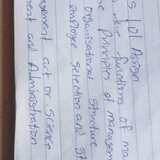 s (o) Assign
the functions of ma
e Principles of managem
Organisational Structure
employee Selection and St
agement art or Science
ment and Administration